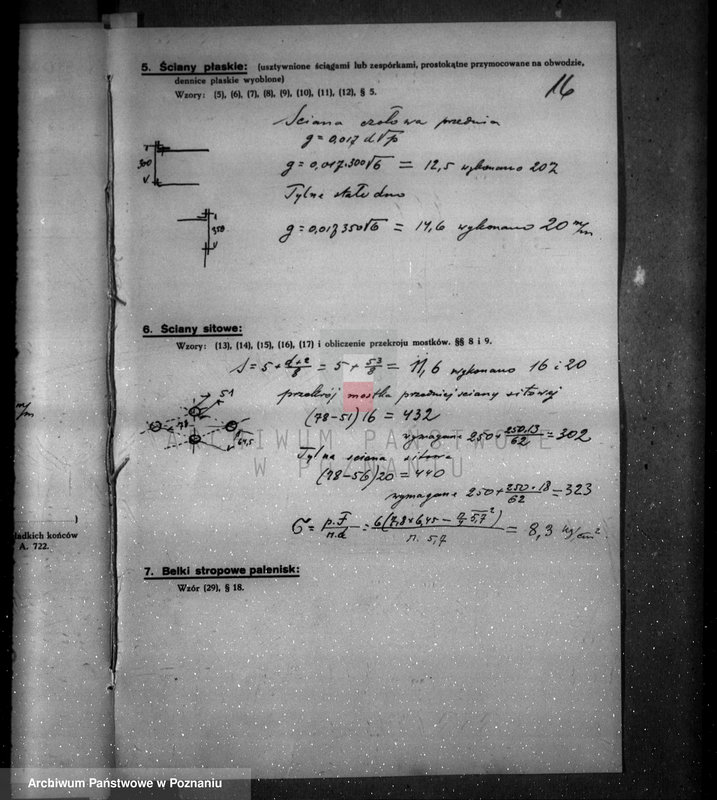 16
5. Ściany płaskie: (usztywnione ściągami lub zespórkami, prostokątne przymocowane na obwodzie,
dennice płaskie wyoblone)
Wzory: (5), (6), (7), (8), (9), (10), (11), (12), § 5.
Ściana czołowa przednia
g = 0,017 d√p
300
g = 0,017·300√6 = 12,5 wykonano 20
Tylne
350
g = 0,017 350√6 = 14,6 wykonano 20 m/m
6. Ściany sitowe:
Wzory: (13), (14), (15), (16), (17) i obliczenie przekroju mostków. §§ 8 i 9.
S = 5 + = 5 + 53/8 = 11,6 wykonano 16 i 20
przekrój mostka przedniej ściany sitowej
51
78
64,5
(78-51)16 = 432
wymagane 250 + 250.13/62 = 302
Tylna sciana sitowa
(78-56)20 = 440
wymagane 250 + 250.18/62 = 323
= 8,3 kg/cm²
m/m
ładkich końców
A. 722.
7. Belki stropowe palenisk:
Wzór (29), § 18.
ARCHIWUM PAŃSTWOWE
W POZNANIU
Archiwum Państwowe w Poznaniu